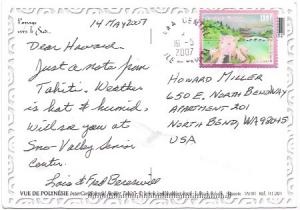 14 MAY 2007
Dear Howard
Just a note from
Tahiti. Weather
is hot & humid,
Will see you at
Sno-Valley Senior
Center.
Lois & Fred
HOWARD MILLER
650 E. NORTH BEND WAY
APARTMENT 201
NORTH BEND, WA 98045
USA
16-5
2007
VUE DE POLYNÉSIE